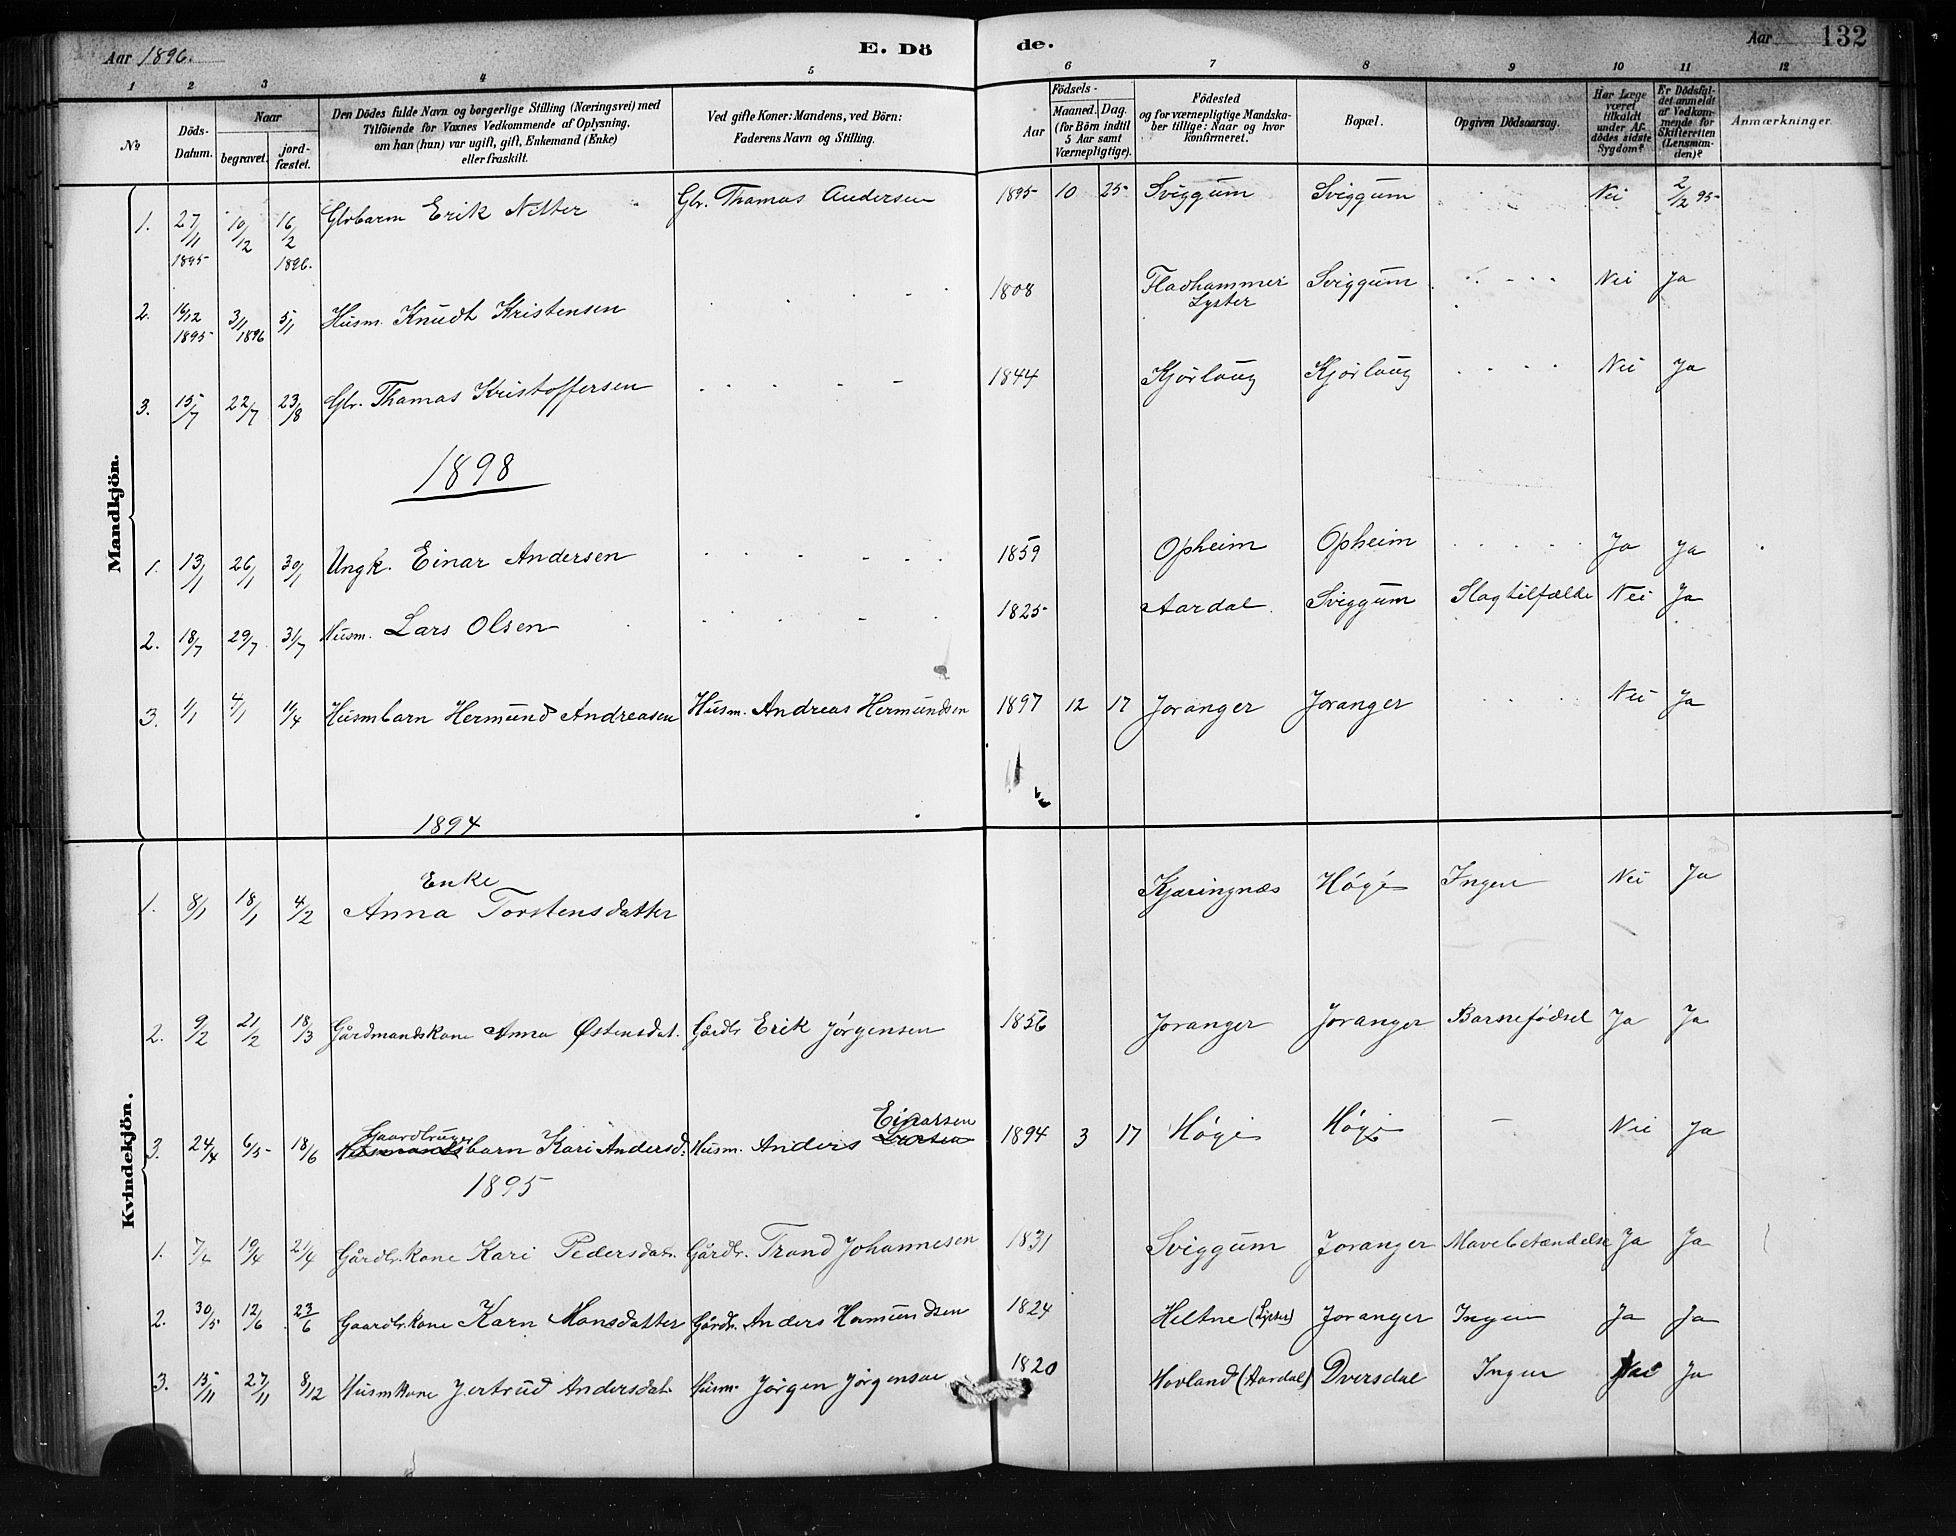 Aar 1896.
E. Dö de.
Aar 132
1 2 3 4 5 6 7 8 9 10 11 12
No
Döds-Datum.
Naar
begravet.
jord-fæstet.
Den Dödes fulde Navn og borgerlige Stilling (Næringsvei) med
Tilföiende for Voxnes Vedkommende af Oplysning,
om han (hun) var ugift, gift, Enkemand (Enke)
eller fraskilt.
Ved gifte Koner: Mandens, ved Börn:
Faderens Navn og Stilling.
Födsels-
Aar
Maaned.
Dag.
(for Börn indtil
5 Aar samt
Værnepligtige).
Födested
og for værnepligtige Mandska-
ber tillige: Naar og hvor
konfirmeret.
Bopæl.
Opgiven Dödsaarsag.
Har Læge
været
tilkaldt
under Af-
dödes sidste
Sygdom?
Er Dödsfal-
det anmeldt
af Vedkom-
mende for
Skifteretten
(Lensman-
den)?
Anmærkninger.
Mandkjön.
1. 27/11 1895 10/12 16/2 1896. Glbbarn Erik Nitter Gbr. Thomas Andersen 1895 10 25 Sviggum Sviggum Nei 2/12 95
2. 16/12 1895 3/1 1896 5/1 Husm. Knudt Kristensen 1808 Fladhammer Lyster Sviggum Nei Ja
3. 15/7 22/7 23/8 Gbr. Thomas Kristoffersen 1844 Kjørlaug Kjørlaug Nei Ja
1898
1. 13/1 26/1 30/1 Ungk. Einar Andersen 1859 Opheim Opheim Ja Ja
2. 18/7 29/7 31/7 Husm. Lars Olsen 1825 Aardal Sviggum Slagtilfælde Nei Ja
3. 1/1 4/1 11/4 Husmbarn Hermund Andreasen Husm. Andreas Hermundsen 1897 12 17 Joranger Joranger Nei Ja
1894
Kvindekjön.
1. 8/1 18/1 4/2 Enke Anna Torstensdatter Kjæringnæs Høge Ingen Nei Ja
2. 9/2 21/2 18/3 Gårdmandskone Anna Østensdat. Gårdbr Erik Jørgensen 1856 Joranger Joranger Barnefødsel Ja Ja
3. 24/4 6/5 18/6 Gaardbruger Husmandsbarn Kari Andersd. Husm. Anders Einarsen Larsen 1894 3 17 Høge Høge Nei Ja
1895
1. 7/4 19/4 21/4 Gårdbr.kone Kari Pedersdat. Gårdbr. Trond Johannesen 1831 Sviggum Joranger Mavebetændelse Ja Ja
2. 30/5 12/6 23/6 Gaardbr.kone Karn Monsdatter Gårdbr. Anders Hermundsen 1824 Heltne (Lyster) Joranger Ingen Ja Ja
3. 15/11 27/11 8/12 Husmkone Jertrud Andersdat. Husm. Jørgen Jørgensen 1820 Hovland (Aardal) Dversdal Ingen Nei Ja